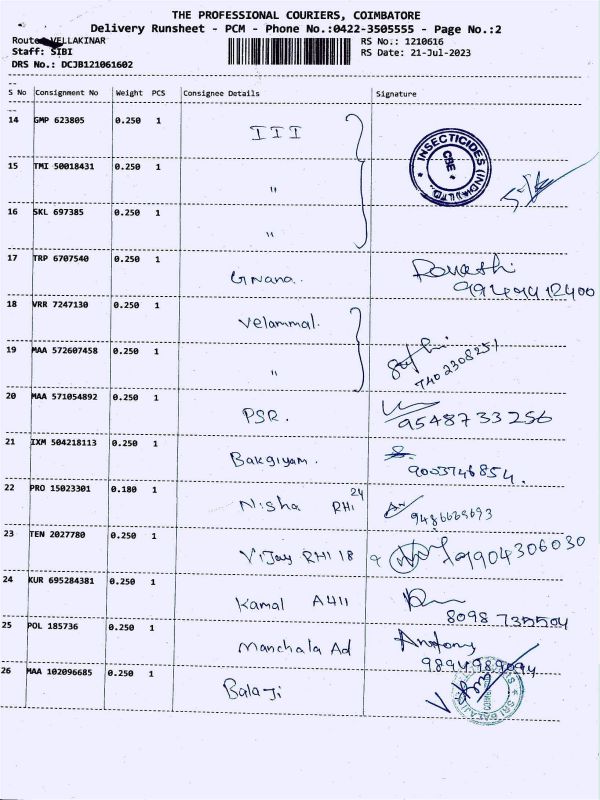 THE PROFESSIONAL COURIERS, COIMBATORE
Delivery Runsheet - PCM - Phone No.:0422-3505555 - Page No.:2
Route: VELLAKINAR
RS No.: 1210616
Staff: SIBI
RS Date: 21-Jul-2023
DRS No.: DCJB121061602
S No Consignment No Weight PCS Consignee Details Signature
14 GMP 623805 0.250 1 III
INSECTICIDES (INDIA) LTD. CBE
15 TMI 50018431 0.250 1 "
16 SKL 697385 0.250 1 "
17 TRP 6707540 0.250 1 Gnana.
18 VRR 7247130 0.250 1 Velammal.
19 MAA 572607458 0.250 1 " 7402308251
20 MAA 571054892 0.250 1 PSR. 9548733256
21 IXM 504218113 0.250 1 Bakgiyam. 9003746854.
22 PRO 15023301 0.180 1 Nisha RHI 24
23 TEN 2027780 0.250 1 Vijay RHI 18 9904306030
24 KUR 695284381 0.250 1 Kamal A411 8098 735504
25 POL 185736 0.250 1 Manchala Ad Antony 9894989094
26 MAA 102096685 0.250 1 Balaji
SRI BALAJI